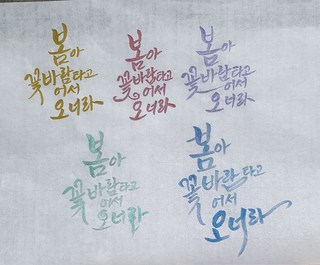 봄아
꽃바람타고
어서
오너라
봄아
꽃바람타고
어서
오너라
봄아
꽃바람타고
어서
오너라
봄아
꽃바람타고
어서
오너라
봄아
꽃바람타고
어서
오너라